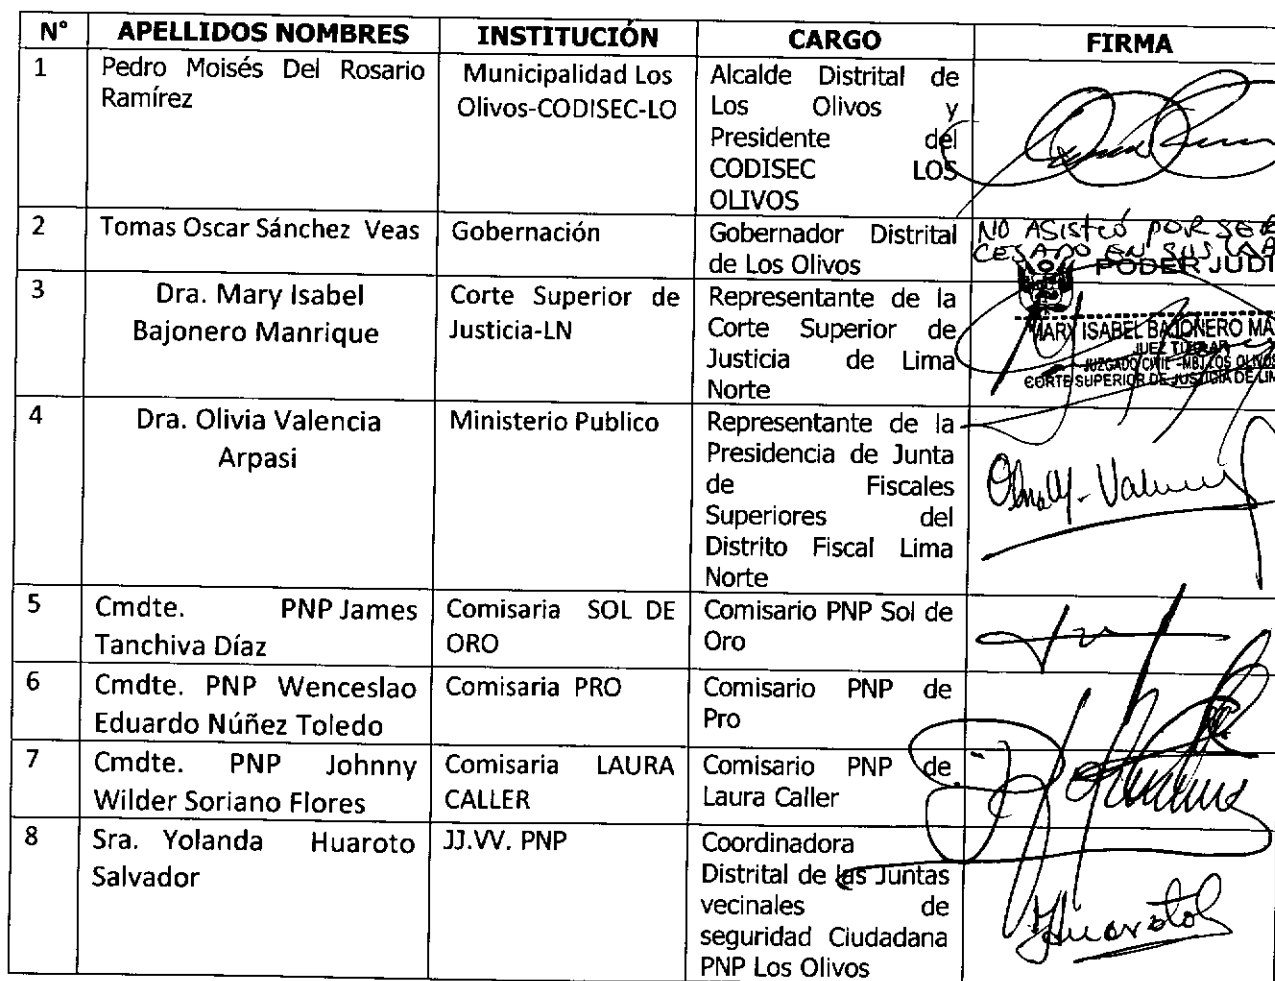 N° APELLIDOS NOMBRES INSTITUCIÓN CARGO FIRMA
1 Pedro Moisés Del Rosario Ramírez
Municipalidad Los
Olivos-CODISEC-LO
Alcalde Distrital de
Los Olivos y
Presidente del
CODISEC LOS
OLIVOS
2 Tomas Oscar Sánchez Veas
Gobernación
Gobernador Distrital
de Los Olivos
NO ASISTIÓ POR SER
CESADO EN SUS
PODER JUDI
3 Dra. Mary Isabel
Bajonero Manrique
Corte Superior de
Justicia-LN
Representante de la
Corte Superior de
Justicia de Lima
Norte
MARY ISABEL BAJONERO MA
JUEZ TITULAR
JUZGADO CIVIL -MBJ LOS OLIVOS
CORTE SUPERIOR DE JUSTICIA DE LIM
4 Dra. Olivia Valencia
Arpasi
Ministerio Publico
Representante de la
Presidencia de Junta
de Fiscales
Superiores del
Distrito Fiscal Lima
Norte
5 Cmdte. PNP James
Tanchiva Díaz
Comisaria SOL DE
ORO
Comisario PNP Sol de
Oro
6 Cmdte. PNP Wenceslao
Eduardo Núñez Toledo
Comisaria PRO
Comisario PNP de
Pro
7 Cmdte. PNP Johnny
Wilder Soriano Flores
Comisaria LAURA
CALLER
Comisario PNP de
Laura Caller
8 Sra. Yolanda Huaroto
Salvador
JJ.VV. PNP
Coordinadora
Distrital de las Juntas
vecinales de
seguridad Ciudadana
PNP Los Olivos